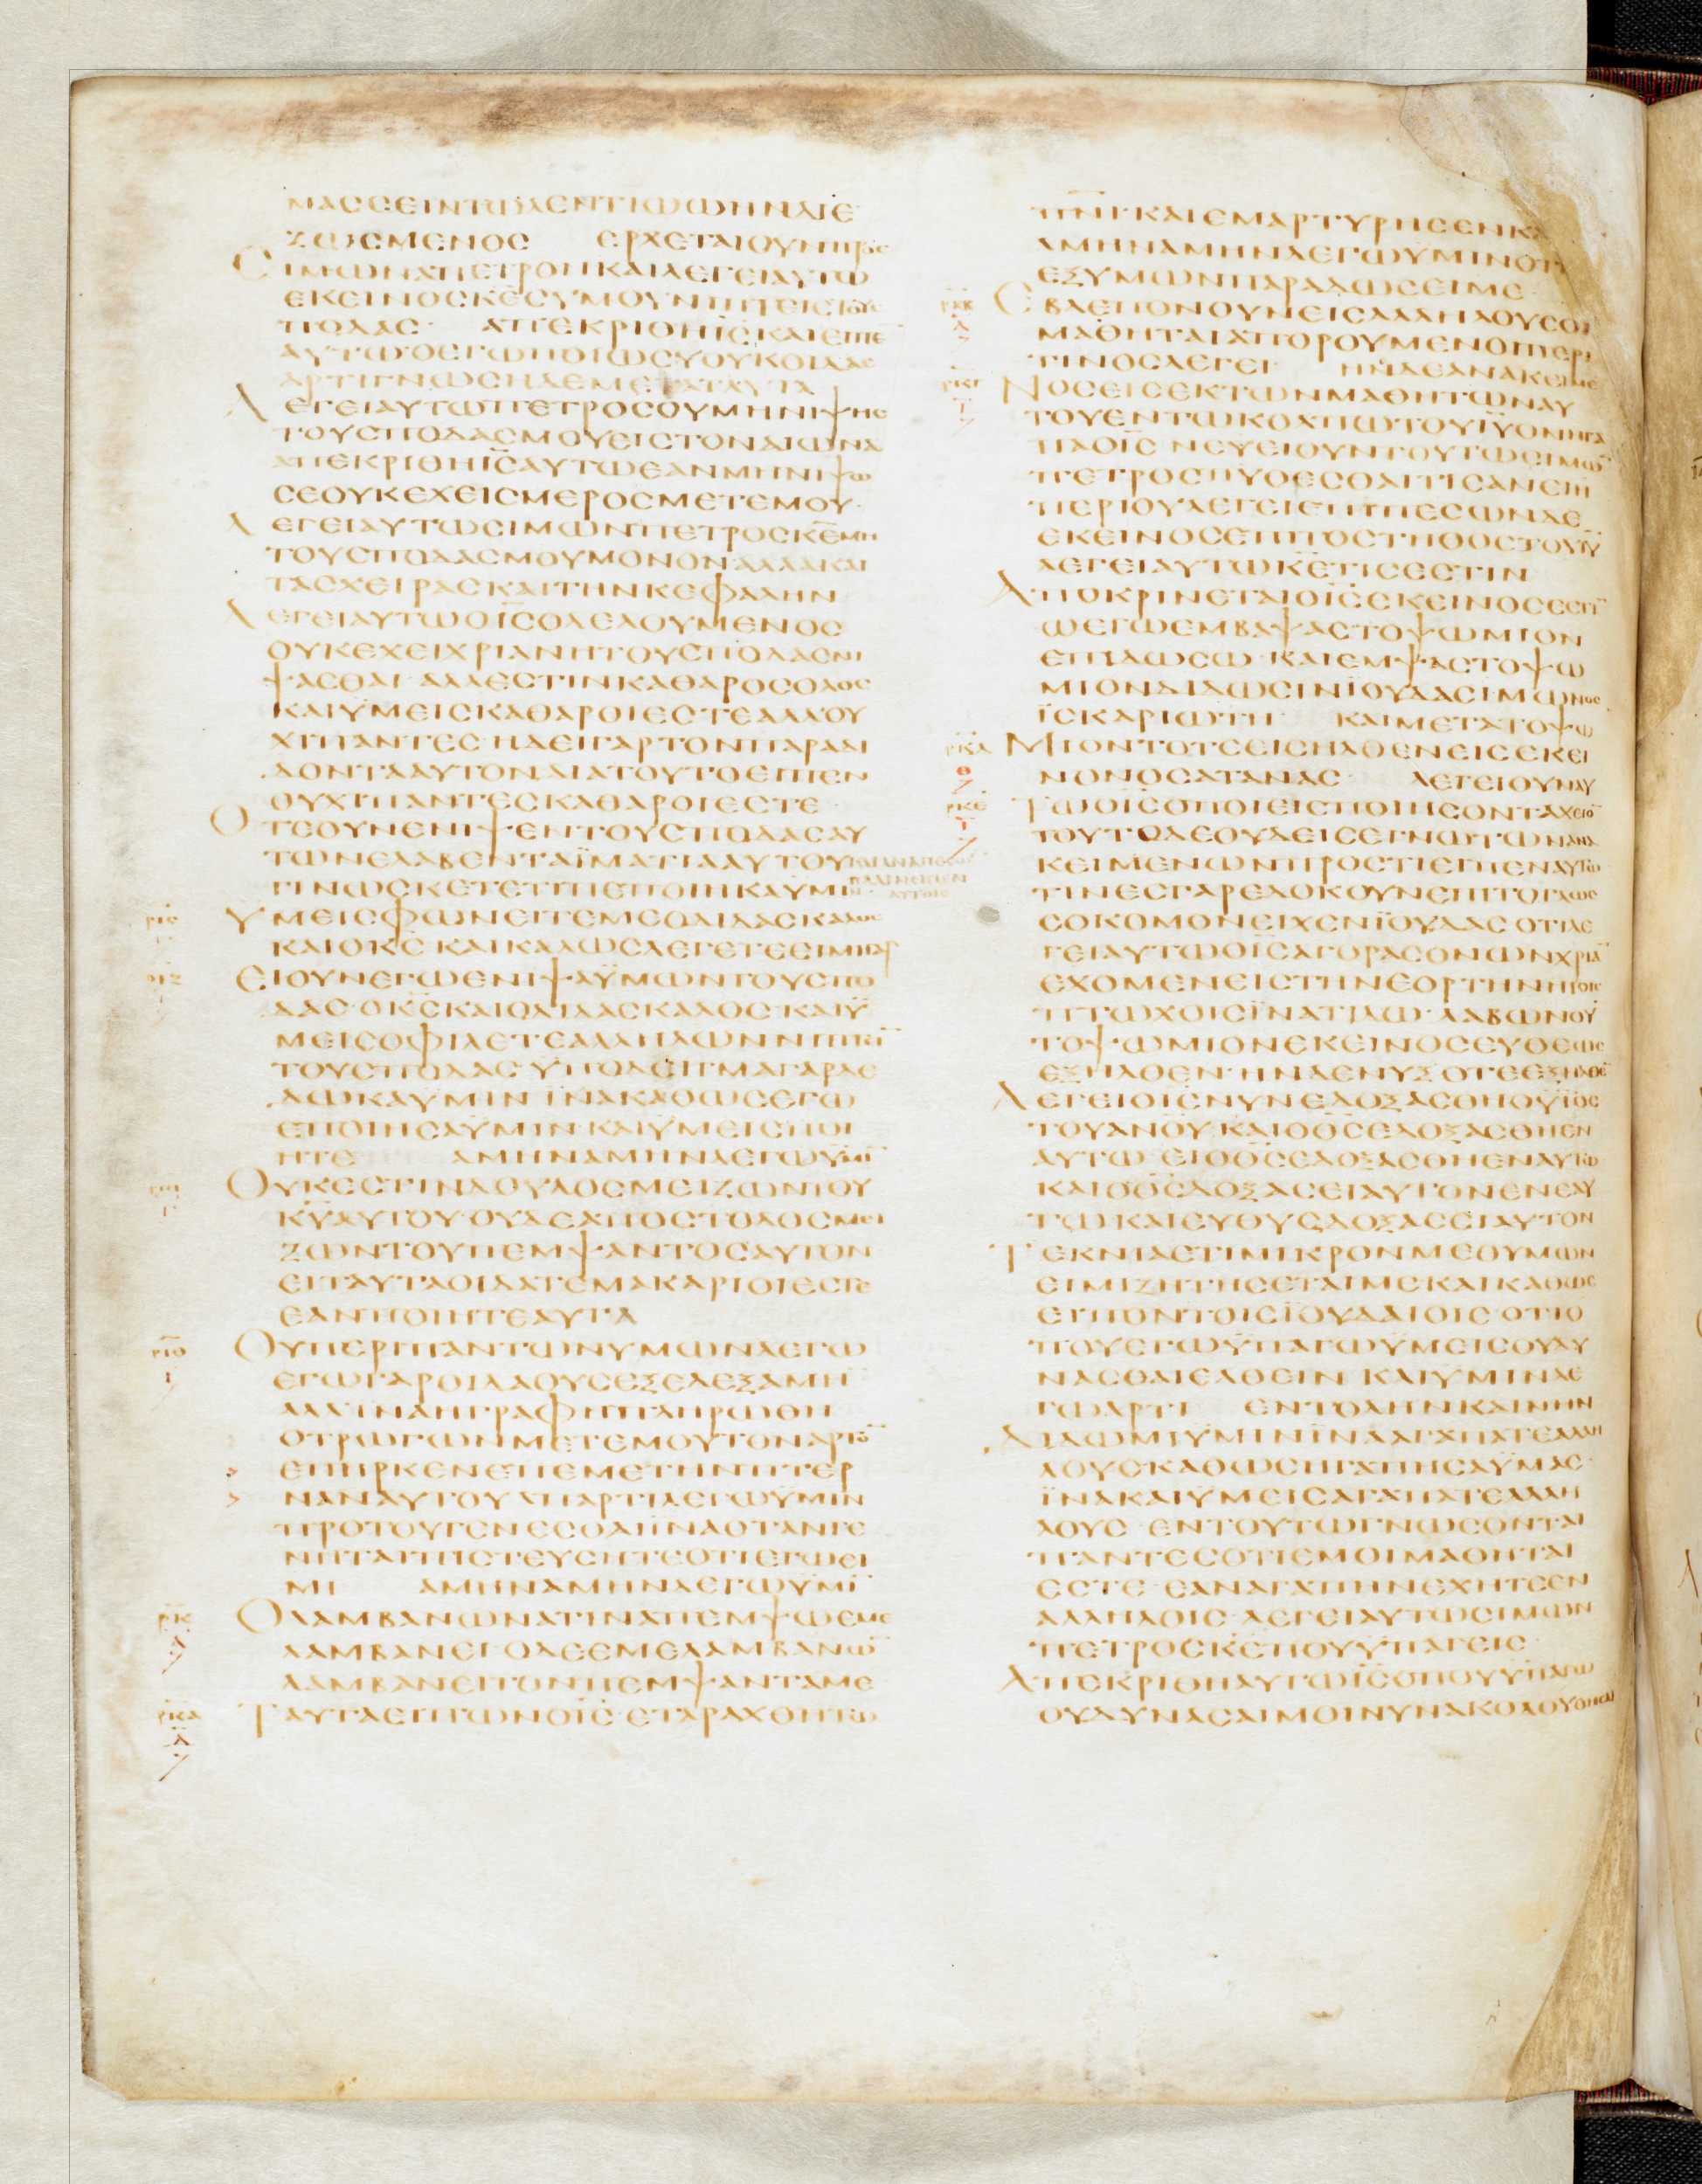 ΜΑϹϹΕΙΝΤΩΛΕΝΤΙΩΩΗΝΔΙΕ
ΖΩϹΜΕΝΟϹ ΕΡΧΕΤΑΙΟΥΝΠΡΟϹ
ϹΙΜΩΝΑΠΕΤΡΟΝΚΑΙΛΕΓΕΙΑΥΤΩ
ΕΚΕΙΝΟϹΚ̅Ε̅ϹΥΜΟΥΝΙΠΤΕΙϹΤΟΥϹ
ΠΟΔΑϹ· ΑΠΕΚΡΙΘΗΙ̅Ϲ̅ΚΑΙΕΙΠΕ̅
ΑΥΤΩ·ΟΕΓΩΠΟΙΩϹΥΟΥΚΟΙΔΑϹ
ΑΡΤΙΓΝΩϹΗΔΕΜΕΤΑΤΑΥΤΑ
ΛΕΓΕΙΑΥΤΩΠΕΤΡΟϹΟΥΜΗΝΙΨΗϹ
ΤΟΥϹΠΟΔΑϹΜΟΥΕΙϹΤΟΝΑΙΩΝΑ
ΑΠΕΚΡΙΘΗΙ̅Ϲ̅ΑΥΤΩΕΑΝΜΗΝΙΨΩ
ϹΕΟΥΚΕΧΕΙϹΜΕΡΟϹΜΕΤΕΜΟΥ·
ΛΕΓΕΙΑΥΤΩϹΙΜΩΝΠΕΤΡΟϹΚ̅Ε̅ΜΗ
ΤΟΥϹΠΟΔΑϹΜΟΥΜΟΝΟΝΑΛΛΑΚΑΙ
ΤΑϹΧΕΙΡΑϹΚΑΙΤΗΝΚΕΦΑΛΗΝ
ΛΕΓΕΙΑΥΤΩΟΙ̅Ϲ̅ΟΛΕΛΟΥΜΕΝΟϹ
ΟΥΚΕΧΕΙΧΡΙΑΝΗΤΟΥϹΠΟΔΑϹΝΙ
ΨΑϹΘΑΙ·ΑΛΛΕϹΤΙΝΚΑΘΑΡΟϹΟΛΟϹ
ΚΑΙΫΜΕΙϹΚΑΘΑΡΟΙΕϹΤΕΑΛΛΟΥ
ΧΙΠΑΝΤΕϹ·ΗΔΕΙΓΑΡΤΟΝΠΑΡΑΔΙ
ΔΟΝΤΑΑΥΤΟΝΔΙΑΤΟΥΤΟΕΙΠΕΝ
ΟΥΧΙΠΑΝΤΕϹΚΑΘΑΡΟΙΕϹΤΕ
ΟΤΕΟΥΝΕΝΙΨΕΝΤΟΥϹΠΟΔΑϹΑΥ
ΤΩΝΕΛΑΒΕΝΤΑΪΜΑΤΙΑΑΥΤΟΥ
ΓΙΝΩϹΚΕΤΕΤΙΠΕΠΟΙΗΚΑΫΜΙΝ
ΫΜΕΙϹΦΩΝΕΙΤΕΜΕΟΔΙΔΑϹΚΑΛΟϹ
ΚΑΙΟΚ̅Ϲ̅ΚΑΙΚΑΛΩϹΛΕΓΕΤΕΕΙΜΙΓΑΡ
ΕΙΟΥΝΕΓΩΕΝΙΨΑΫΜΩΝΤΟΥϹΠΟ
ΔΑϹ·ΟΚ̅Ϲ̅ΚΑΙΟΔΙΔΑϹΚΑΛΟϹ·ΚΑΙΫ
ΜΕΙϹΟΦΙΛΕΤΕΑΛΛΗΛΩΝΝΙΠΤΙ̅
ΤΟΥϹΠΟΔΑϹ·ΫΠΟΔΕΙΓΜΑΓΑΡΔΕ
ΔΩΚΑΫΜΙΝΪΝΑΚΑΘΩϹΕΓΩ
ΕΠΟΙΗϹΑΫΜΙΝ·ΚΑΙΫΜΕΙϹΠΟΙ
ΗΤΕ ΑΜΗΝΑΜΗΝΛΕΓΩΫΜΙ̅
ΟΥΚΕϹΤΙΝΔΟΥΛΟϹΜΕΙΖΩΝΤΟΥ
Κ̅Υ̅ΑΥΤΟΥ·ΟΥΔΕΑΠΟϹΤΟΛΟϹΜΕΙ
ΖΩΝΤΟΥΠΕΜΨΑΝΤΟϹΑΥΤΟΝ
ΕΙΤΑΥΤΑΟΙΔΑΤΕΜΑΚΑΡΙΟΙΕϹΤΕ
ΕΑΝΠΟΙΗΤΕΑΥΤΑ
ΟΥΠΕΡΙΠΑΝΤΩΝΥΜΩΝΛΕΓΩ
ΕΓΩΓΑΡΟΙΔΑΟΥϹΕΞΕΛΕΞΑΜΗ̅
ΑΛΛΪΝΑΗΓΡΑΦΗΠΛΗΡΩΘΗ
ΟΤΡΩΓΩΝΜΕΤΕΜΟΥΤΟΝΑΡΤΟ̅
ΕΠΗΡΚΕΝΕΠΕΜΕΤΗΝΠΤΕΡ
ΝΑΝΑΥΤΟΥΑΠΑΡΤΙΛΕΓΩΫΜΙΝ
ΠΡΟΤΟΥΓΕΝΕϹΘΑΙΪΝΑΟΤΑΝΓΕ
ΝΗΤΑΙΠΙϹΤΕΥϹΗΤΕΟΤΙΕΓΩΕΙ
ΜΙ ΑΜΗΝΑΜΗΝΛΕΓΩΫΜΙ̅
ΟΛΑΜΒΑΝΩΝΑΤΙΝΑΠΕΜΨΩΕΜΕ
ΛΑΜΒΑΝΕΙ·ΟΔΕΕΜΕΛΑΜΒΑΝΩ̅
ΛΑΜΒΑΝΕΙΤΟΝΠΕΜΨΑΝΤΑΜΕ
ΤΑΥΤΑΕΙΠΩΝΟΙ̅Ϲ̅·ΕΤΑΡΑΧΘΗΤΩ
ΠΝ̅Ι̅·ΚΑΙΕΜΑΡΤΥΡΗϹΕΝΚΑ
ΑΜΗΝΑΜΗΝΛΕΓΩΥΜΙΝΟΤΙ
ΕΞΥΜΩΝΠΑΡΑΔΩϹΕΙΜΕ
ΕΒΛΕΠΟΝΟΥΝΕΙϹΑΛΛΗΛΟΥϹΟΙ
ΜΑΘΗΤΑΙΑΠΟΡΟΥΜΕΝΟΙΠΕΡΙ
ΤΙΝΟϹΛΕΓΕΙ ΗΝΔΕΑΝΑΚΕΙΜΕ
ΝΟϹΕΙϹΕΚΤΩΝΜΑΘΗΤΩΝΑΥ
ΤΟΥΕΝΤΩΚΟΛΠΩΤΟΥΙ̅Υ̅ΟΝΗΓΑ
ΠΑΟΙ̅Ϲ̅·ΝΕΥΕΙΟΥΝΤΟΥΤΩϹΙΜΩ̅
ΠΕΤΡΟϹΠΥΘΕϹΘΑΙΤΙϹΑΝΕΙΗ
ΠΕΡΙΟΥΛΕΓΕΙΕΠΙΠΕϹΩΝΔΕ
ΕΚΕΙΝΟϹΕΠΙΤΟϹΤΗΘΟϹΤΟΥΙ̅Υ̅
ΛΕΓΕΙΑΥΤΩΚ̅Ε̅ΤΙϹΕϹΤΙΝ
ΑΠΟΚΡΙΝΕΤΑΙΟΙ̅Ϲ̅ΕΚΕΙΝΟϹΕϹΤΙ̅
ΩΕΓΩΕΜΒΑΨΑϹΤΟΨΩΜΙΟΝ
ΕΠΙΔΩϹΩ·ΚΑΙΕΜΨΑϹΤΟΨΩ
ΜΙΟΝΔΙΔΩϹΙΝΪΟΥΔΑϹΙΜΩΝΟϹ
ΪϹΚΑΡΙΩΤΗ ΚΑΙΜΕΤΑΤΟΨΩ
ΜΙΟΝΤΟΤΕΕΙϹΗΛΘΕΝΕΙϹΕΚΕΙ
ΝΟΝΟϹΑΤΑΝΑϹ ΛΕΓΕΙΟΥΝΑΥ
ΤΩΟΙ̅Ϲ̅ΟΠΟΙΕΙϹΠΟΙΗϹΟΝΤΑΧΕΙΟ̅
ΤΟΥΤΟΔΕΟΥΔΕΙϹΕΓΝΩΤΩΝΑΝΑ
ΚΕΙΜΕΝΩΝΠΡΟϹΤΙΕΙΠΕΝΑΥΤΩ
ΤΙΝΕϹΓΑΡΕΔΟΚΟΥΝΕΠΙΤΟΓΛΩϹ
ϹΟΚΟΜΟΝΕΙΧΕΝΪΟΥΔΑϹΟΤΙΛΕ
ΓΕΙΑΥΤΩΟΙ̅Ϲ̅ΑΓΟΡΑϹΟΝΩΝΧΡΙΑ̅
ΕΧΟΜΕΝΕΙϹΤΗΝΕΟΡΤΗΝΗΤΟΙϹ
ΠΤΩΧΟΙϹΪΝΑΤΙΔΩ·ΛΑΒΩΝΟΥ̅
ΤΟΨΩΜΙΟΝΕΚΕΙΝΟϹΕΥΘΕΩϹ
ΕΞΗΛΘΕΝ·ΗΝΔΕΝΥΞΟΤΕΕΞΗΛΘΕ̅
ΛΕΓΕΙΟΙ̅Ϲ̅ΝΥΝΕΔΟΞΑϹΘΗΟΫΙΟϹ
ΤΟΥΑΝΟΥ·ΚΑΙΟΘ̅Ϲ̅ΕΔΟΞΑϹΘΗΕΝ
ΑΥΤΩ·ΕΙΟΘ̅Ϲ̅ΕΔΟΞΑϹΘΗΕΝΑΥΤΩ
ΚΑΙΟΘ̅Ϲ̅ΔΟΞΑϹΕΙΑΥΤΟΝΕΝΕΑΥ
ΤΩ·ΚΑΙΕΥΘΥϹΔΟΞΑϹΕΙΑΥΤΟΝ
ΤΕΚΝΙΑΕΤΙΜΙΚΡΟΝΜΕΘΥΜΩΝ
ΕΙΜΙΖΗΤΗϹΕΤΑΙΜΕΚΑΙΚΑΘΩϹ
ΕΙΠΟΝΤΟΙϹΪΟΥΔΑΙΟΙϹ·ΟΤΙΟ
ΠΟΥΕΓΩΫΠΑΓΩΫΜΕΙϹΟΥΔΥ
ΝΑϹΘΑΙΕΛΘΕΙΝ·ΚΑΙΫΜΙΝΛΕ
ΓΩΑΡΤΙ ΕΝΤΟΛΗΝΚΑΙΝΗΝ
ΔΙΔΩΜΙΥΜΙΝΪΝΑΑΓΑΠΑΤΕΑΛΛΗ
ΛΟΥϹΚΑΘΩϹΗΓΑΠΗϹΑΫΜΑϹ·
ΪΝΑΚΑΙΫΜΕΙϹΑΓΑΠΑΤΕΑΛΛΗ
ΛΟΥϹ·ΕΝΤΟΥΤΩΓΝΩϹΟΝΤΑΙ
ΠΑΝΤΕϹΟΤΙΕΜΟΙΜΑΘΗΤΑΙ
ΕϹΤΕ·ΕΑΝΑΓΑΠΗΝΕΧΗΤΕΕΝ
ΑΛΛΗΛΟΙϹ·ΛΕΓΕΙΑΥΤΩϹΙΜΩΝ
ΠΕΤΡΟϹΚ̅Ε̅ΠΟΥΫΠΑΓΕΙϹ
ΑΠΕΚΡΙΘΗΑΥΤΩΙ̅Ϲ̅ΟΠΟΥΫΠΑΓΩ
ΟΥΔΥΝΑϹΑΙΜΟΙΝΥΝΑΚΟΛΟΥΘΗϹΑΙ